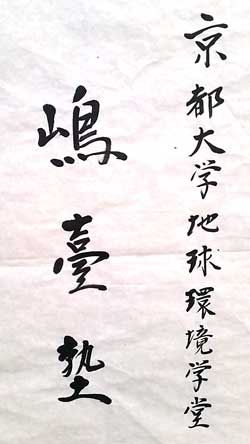 京都大学地球環境学堂
嶋臺塾